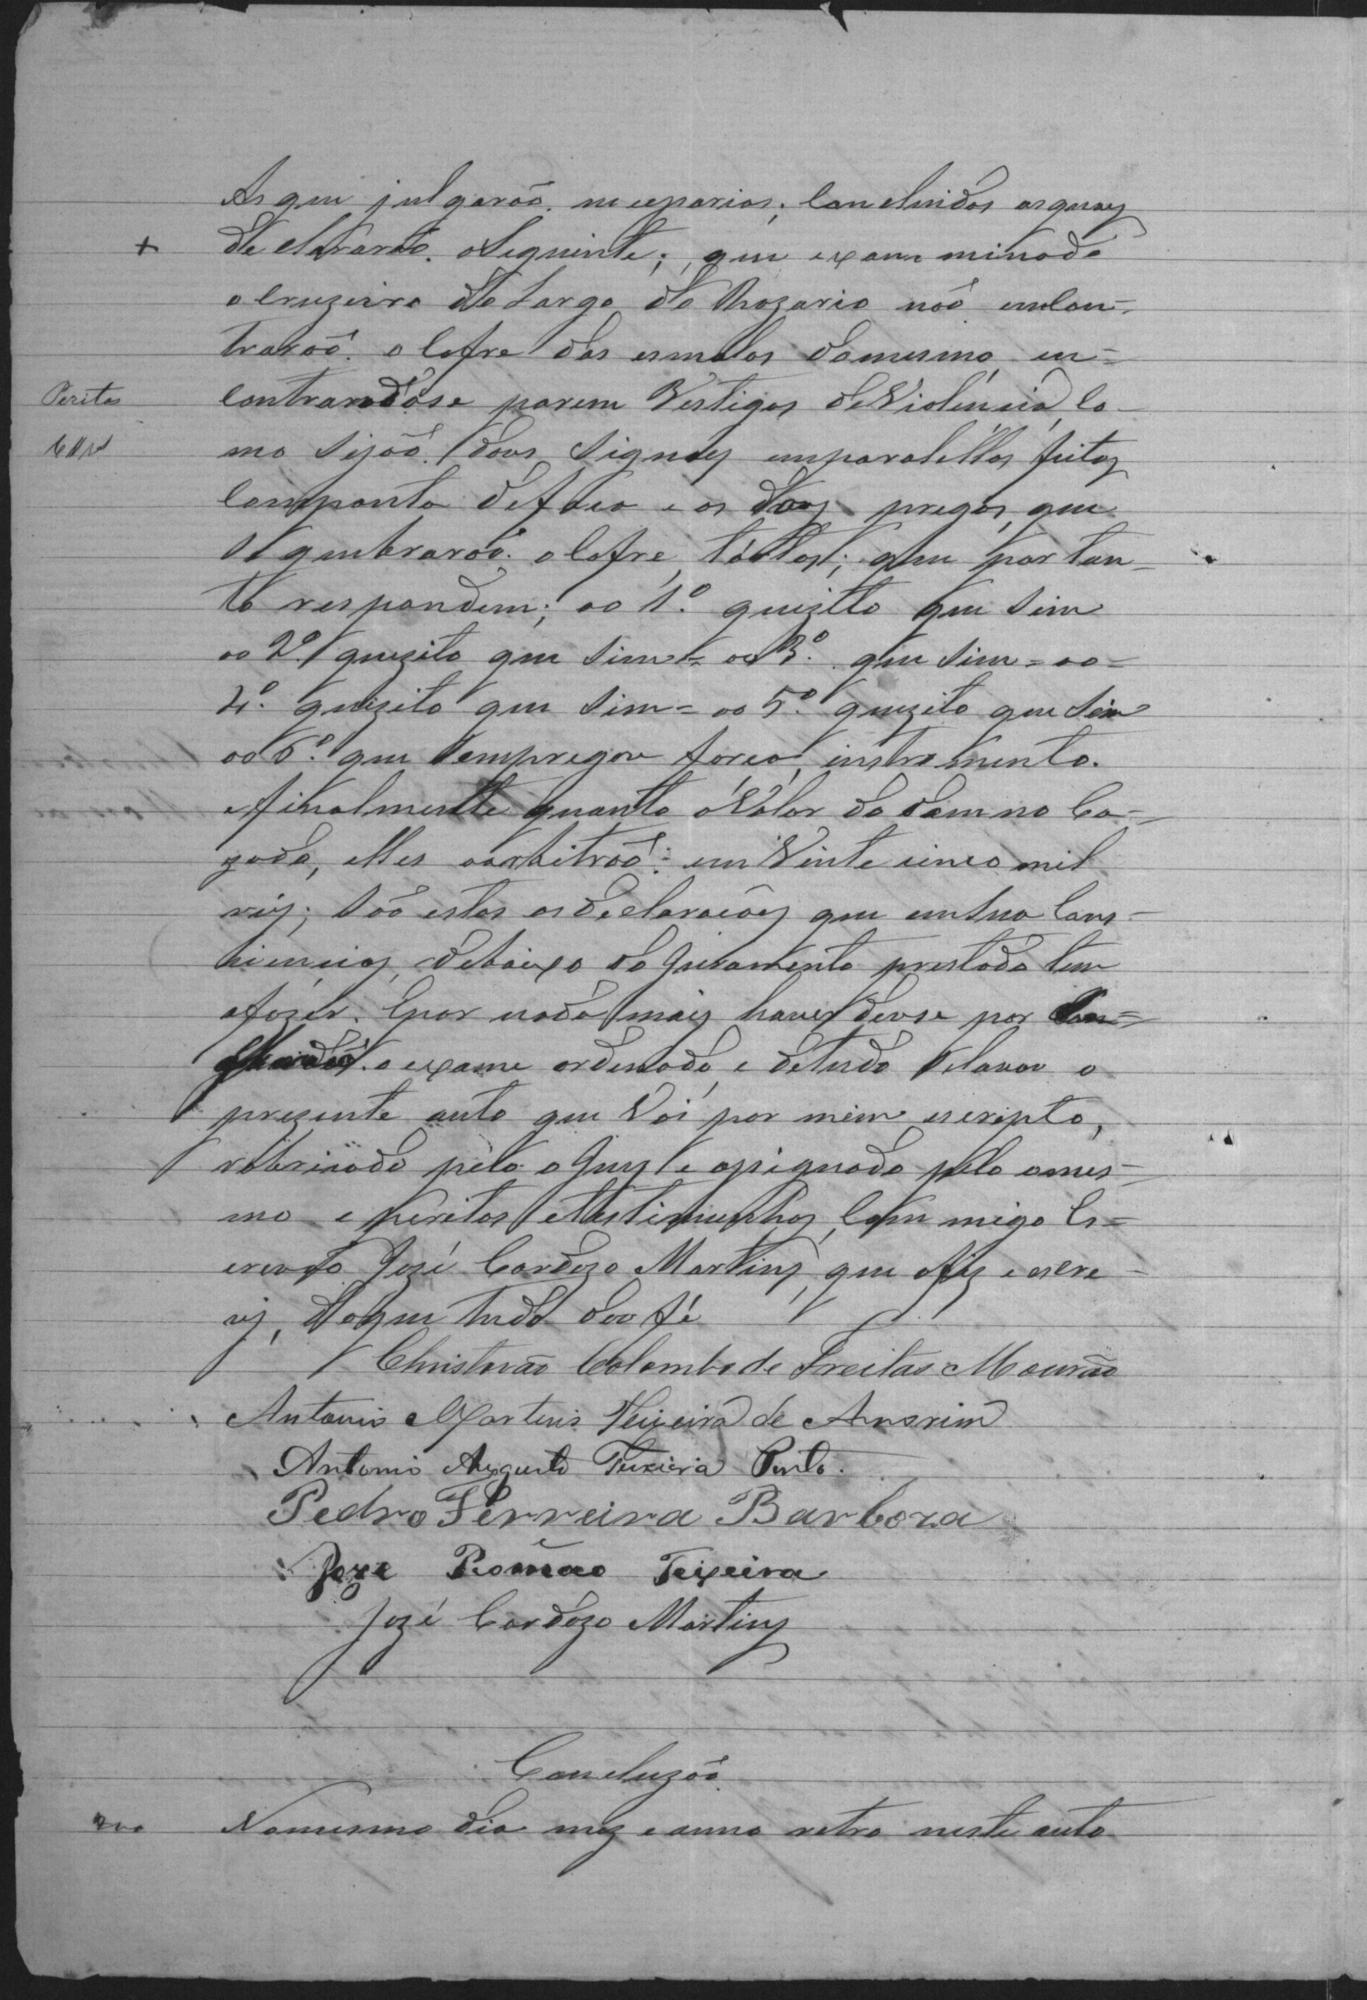 As que julgaráõ necessarias; Concluidas as quaes
declararaõ o Seguinte; que examminado
o Cruzeiro do Largo do Rozario não encon=
traraõ o Cofre das esmolas do mesmo en=
contrandose porem Vestigos de Violencia Co-
mo sejaõ dous signaes em paralellos feitos
Com ponta de faca e os dous pregos que
Segurararaõ o Cofre tortos; que por tan-
to respondem; ao 1º. quizito que Sim
ao 2º quezito que Sim = ao 3º. que Sim = ao =
4º. quezito que Sim = ao 5º. quezito que Sim
ao 6º. que Sempregou força, instromento.
e finalmente quanto ó Valor do damno Ca=
zado, elles aarbitraõ: em Vinte cinco mil
reis; Saõ estas as declaracões que em Sua Cons-
ciencias, debaixo do Juramento prestado tem
afazer. E por nada mais haver deuse por Con=
o exame ordenado, e de tudo Selavou o
prezente auto que Vai por mim escripto,
robricado pelo o Juiz e assignado pelo omes-
mo e Peritos e testimunhas, Com migo Es=
crivaõ José Cardozo Martins, que o fiz e escre-
vi, do que tudo dou fé
Christovão Colombo de Freitas Mourão
Antonio Martins Teixeira de Amorim
Antonio Augusto Teixeira Pinto.
Pedro Ferreira Barboza
Joze Romão Teixeira
José Cardozo Martins
Concluzaõ
No mesmo dia mez e anno retro neste auto
+
Peritos